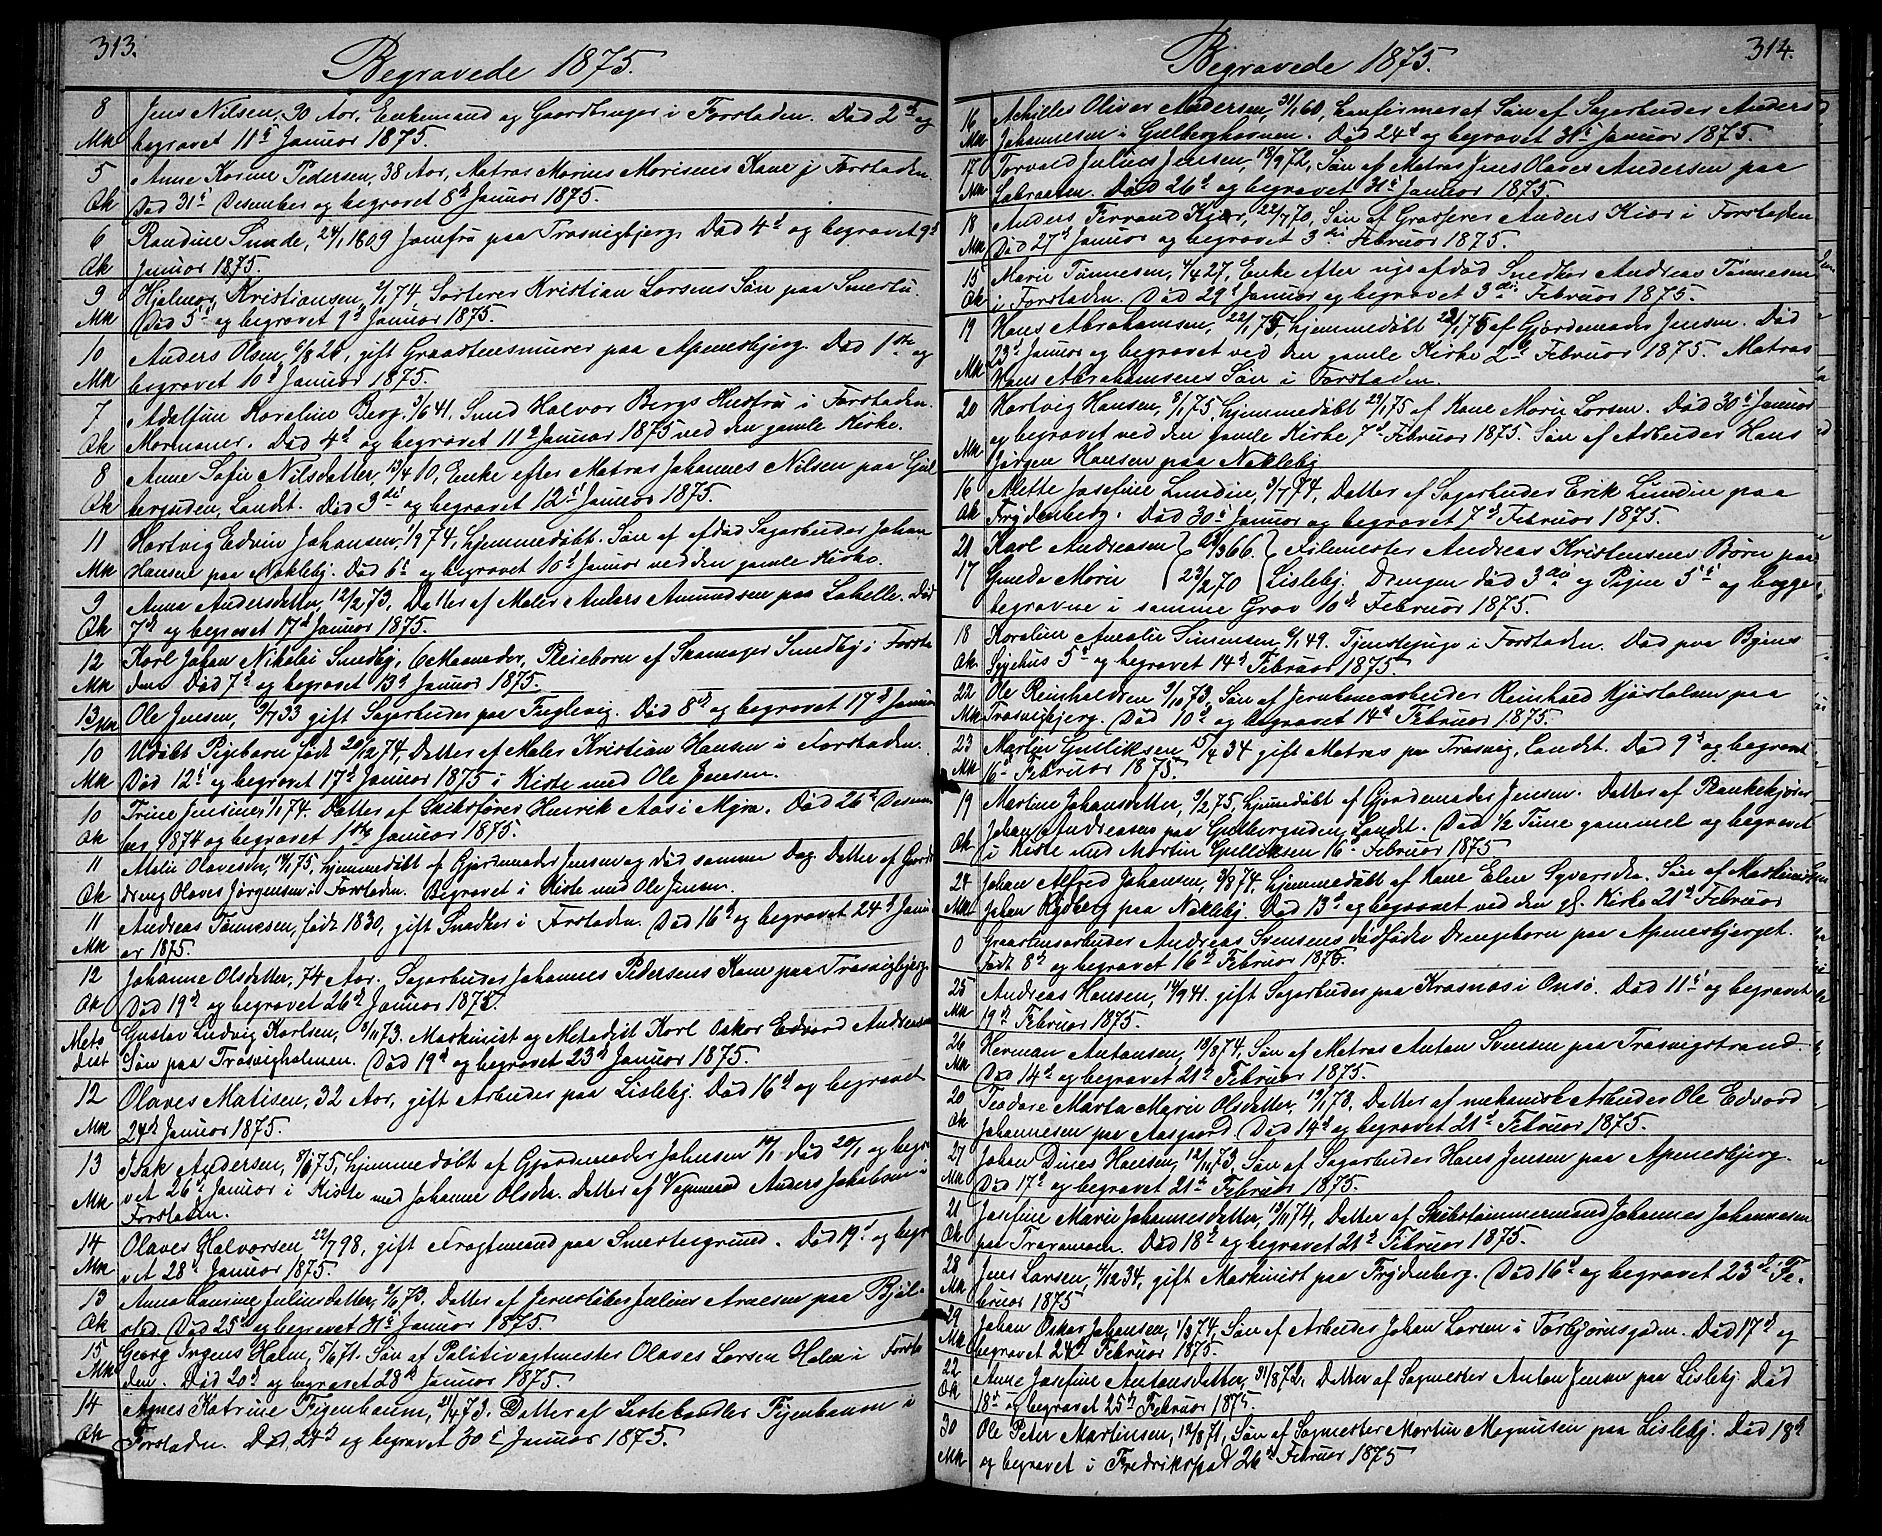 313.
Begravede 1875.
8 Jens Nilsen, 30 Aar, Enkemand og Gaardbruger i Forstaden. Död 2den og
Mk begravet 11te Januar 1875.
5 Anne Karine Pedersen, 38 Aar, Matros Marius Morisens Kane i Forstaden.
Qk Död 31te Desember og begravet 8de Januar 1875.
6 Randine Sunde, 24/1 1809 Jomfru paa Trosvigbjerg. Död 4de og begravet 9de
Qk Januar 1875.
9 Hjalmar Kristiansen, 2/1 74. Sorterer Kristian Larsens Sön paa Smertu.
Mk Död 5te og begravet 9de Januar 1875.
10 Anders Olsen, 6/8 26, gift Graastensmurer paa Apenesbjerg. Död 1ste og
Mk begravet 10de Januar 1875.
7 Adolfine Karoline Berg, 3/6 41, Smed Halvor Bergs Hustru i Forstaden.
Qk Mormoner. Död 4de og begravet 11te Januar 1875 ved den gamle Kirke.
8 Anne Sofie Nilsdatter, 13/4 10, Enke efter Matros Johannes Nilsen paa Gul
Qk berguden, Landet. Död 3die og begravet 12te Januar 1875.
11 Hartvig Edvin Johansen, 1/9 74, hjemmedöbt. Sön af Afdöd Sagarbeider Johan
Mk Hansen paa Nakleby. Död 6te og begravet 10de Januar ved den gamle Kirke.
9 Anna Andersdatter, 12/2 73, Datter af Maler Anders Amundsen paa Labelle. Död
Qk 7de og begravet 17de Januar 1875.
12 Karl Johan Nikolai Smedby, 6 Maaneder, Pleiebarn af Skomager Smedby i Forsta
Mk den. Död 7de og begravet 13de Januar 1875.
13 Mk Ole Jensen, 9/7 33 gift Sagarbeider paa Fuglevig. Död 8de og begravet 17de Januar
10 Udöbt Pigebarn födt 20/12 74, Datter af Maler Kristian Hansen i Forstaden.
Mk Död 12te og begravet 17de Januar 1875 i Kiste med Ole Jensen.
10 Trine Jensine, 1/1 74. Datter af Skibsförer Henrik Aas i Myra. Död 26de Desem
Qk ber 1874 og begravet 1ste Januar 1875.
11 Olavesdr, 14/1 75, hjemmedöbt af Gjordemoder Jensen og död samme Dag. Datter af Gaard
Qk dreng Olaves Jörgensen i Forstaden. Begravet i Kiste med Ole Jensen.
11 Andreas Tönnesen, födt 1830, gift Snedker i Forstaden. Död 16de og begravet 24de Janu
Mk ar 1875.
12 Johanne Olsdatter, 74 Aar. Sagarbeider Johannes Pedersens Kone paa Trosvigbjerg.
Qk Död 19de og begravet 26de Januar 1875.
Meto Gustav Ludvig Karlsen, 5/11 73. Maskinist og Metodist Karl Oskar Edvard Andreasens
dist Sön paa Trosvigholmen. Död 19de og begravet 23de Januar 1875.
12 Olaves Matisen, 32 Aar, gift Arbeider paa Lisleby. Död 16de og begravet
Mk 24de Januar 1875.
13 Isak Andersen, 75, hjemmedöbt af Gjordemoder Johnsen 14/1. död 20/1 og begra
Mk vet 26de Januar i Kiste med Johanne Olsdr. Datter af Vognmand Anders Jakobsen i
Forstaden.
14 Olaves Halvorsen, 22/7 98, gift Fragtmand paa Smertegrund. Död 19de og begra
Mk vet 28de Januar 1875.
13 Anna Lausine Juliusdatter, 2/6 73. Datter af Jernstöber Julius Arnesen paa Bjöl
Qk stad. Död 25de og begravet 31te Januar 1875.
15 Georg Ingens Holm, 5/6 71. Sön af Politivagtmester Olaves Larsen Holm i Forsta
Mk den. Död 20de og begravet 28de Januar 1875.
14 Agnes Katrine Figenbaum, 21/4 73. Datter af Listehandler Figenbaum i
Qk Forstaden. Död 24de og begravet 30te Januar 1875.
314.
Begravede 1875.
16 Achilles Oliver Andersen, 31/1 60, konfirmeret Sön af Sagarbeider Anders
Mk Johannesen i Gulberghavnen. Död 24de og begravet 31te Januar 1875.
17 Torvald Julius Jensen, 18/9 72, Sön af Matros Jens Olaves Andersen paa
Mk Labraaten. Död 26de og begravet 31te Januar 1875.
18 Anders Fernand Kiær, 22/7 70, Sön af Grosserer Anders Kiær i Forstaden
Mk Död 27de Januar og begravet 3die Februar 1875.
15 Marie Tönnesen, 4/4 27, Enke efter nys afdöd Snedker Andreas Tönnesen
Qk i Forstaden. Död 29de Januar og begravet 3die Februar 1875.
19 Hans Abrahamsen, 22/1 75, hjemmedöbt 22/1 75 af Gjordemoder Jensen. Död
23de Januar og begravet ved den gamle Kirke 2den Februar 1875. Matros
Mk Hans Abrahamsens Sön i Forstaden.
20 Hartvig Hansen, 8/1 75, hjemmedöbt 29/1 75 af Kone Marie Larsen. Död 30te Januar
og begravet ved den gamle Kirke 7de Februar 1875. Sön af Arbeider Hans
Mk Jörgen Hansen paa Nakleby
16 Alette Josefine Lundin, 3/7 74, Datter af Sagarbeider Erik Lundin paa
Qk Frydenberg. Död 30te Januar og begravet 7de Februar 1875.
21 Karl Andreasen 28/3 66. Filemester Andreas Kristensens Börn paa
17 Gineda Marie 23/2 70 Lisleby. Drengen död 3die og Pigen 5te og begge
begravne i samme Grav 10de Februar 1875.
18 Karoline Amalie Simensen 6/1 49. Tjenestepige i Forstaden. Död paa Byens
Qk Sygehus 5te og begravet 14de Februar 1875.
22 Ole Reinholdsen 9/10 73, Sön af Jernbanearbeider Reinhold Hjørtolsen paa
Mk Trosvigbjerg. Död 10de og begravet 14de Februar 1875.
23 Martin Gulliksen 15/4 34 gift Matros paa Trosvig, Landet. Död 9de og begravet
Mk 16de Februar 1875.
19 Martine Johansdatter, 9/2 75, hjemedöbt af Gjordemoder Jensen. Datter af Plankekjörer
Johan Andreasen paa Gulberguden, Landet. Död 1/2 Time gammel og begravet
Qk i Kiste med Martin Gulliksen 16de Februar 1875
24 Johan Alfred Johansen, 3/8 74, hjemmedöbt af Kone Elen Syversdr. Sön af Maskinist
Mk Johan Rydberg paa Nakleby. Död 13de og begravet ved den gl. Kirke 21de Februar
0 Graastensarbeider Andreas Svensens dödfödte Drengebarn paa Apenesbjerget.
Födt 8de og begravet 16de Februar 1875.
25 Andreas Hansen, 14/9 41. gift Sagarbeider paa Krosnæs i Onsö. Död 11te og begravet
Mk 19de Februar 1875.
26 Herman Antonsen, 18/8 74, Sön af Matros Anton Svensen paa Trosvigstrand.
Mk Död 14de og begravet 21de Februar 1875.
20 Teodore Marta Marie Olsdatter, 19/1 78, Datter af mekanisk Arbeider Ole Edvard
Qk Johannesen paa Aasgaard. Död 14de og begravet 21de Februar 1875.
27 Johan Dines Hansen, 12/11 73, Sön af Sagarbeider Hans Jensen paa Apenesbjerg.
Mk Död 17de og begravet 21de Februar 1875.
21 Josefine Marie Johannesdatter, 13/11 74, Datter af Skibstömmermand Johannes Johannesen
Qk paa Traramoen. Död 18de og begravet 21de Februar 1875.
28 Jens Larsen, 4/12 34, gift Maskinist paa Frydenberg. Död 16de og begravet 23de Fe-
Mk bruar 1875
29 Johan Oskar Johansen, 1/3 74, Sön af Arbeider Johan Larsen i Torbjörnsgaden. Död 17de og
Mk begravet 24de Februar 1875
22 Anne Josefine Antonsdatter, 31/8 72, Datter af Sagmester Anton Jensen paa Lisleby Död
Qk 18de og begravet 25de Februar 1875.
30 Ole Peter Martinsen, 12/8 71, Sön af Sagmester Martin Magnusen paa Lisleby. Död 18de
Mk og begravet i Fredrikstad 26de Februar 1875